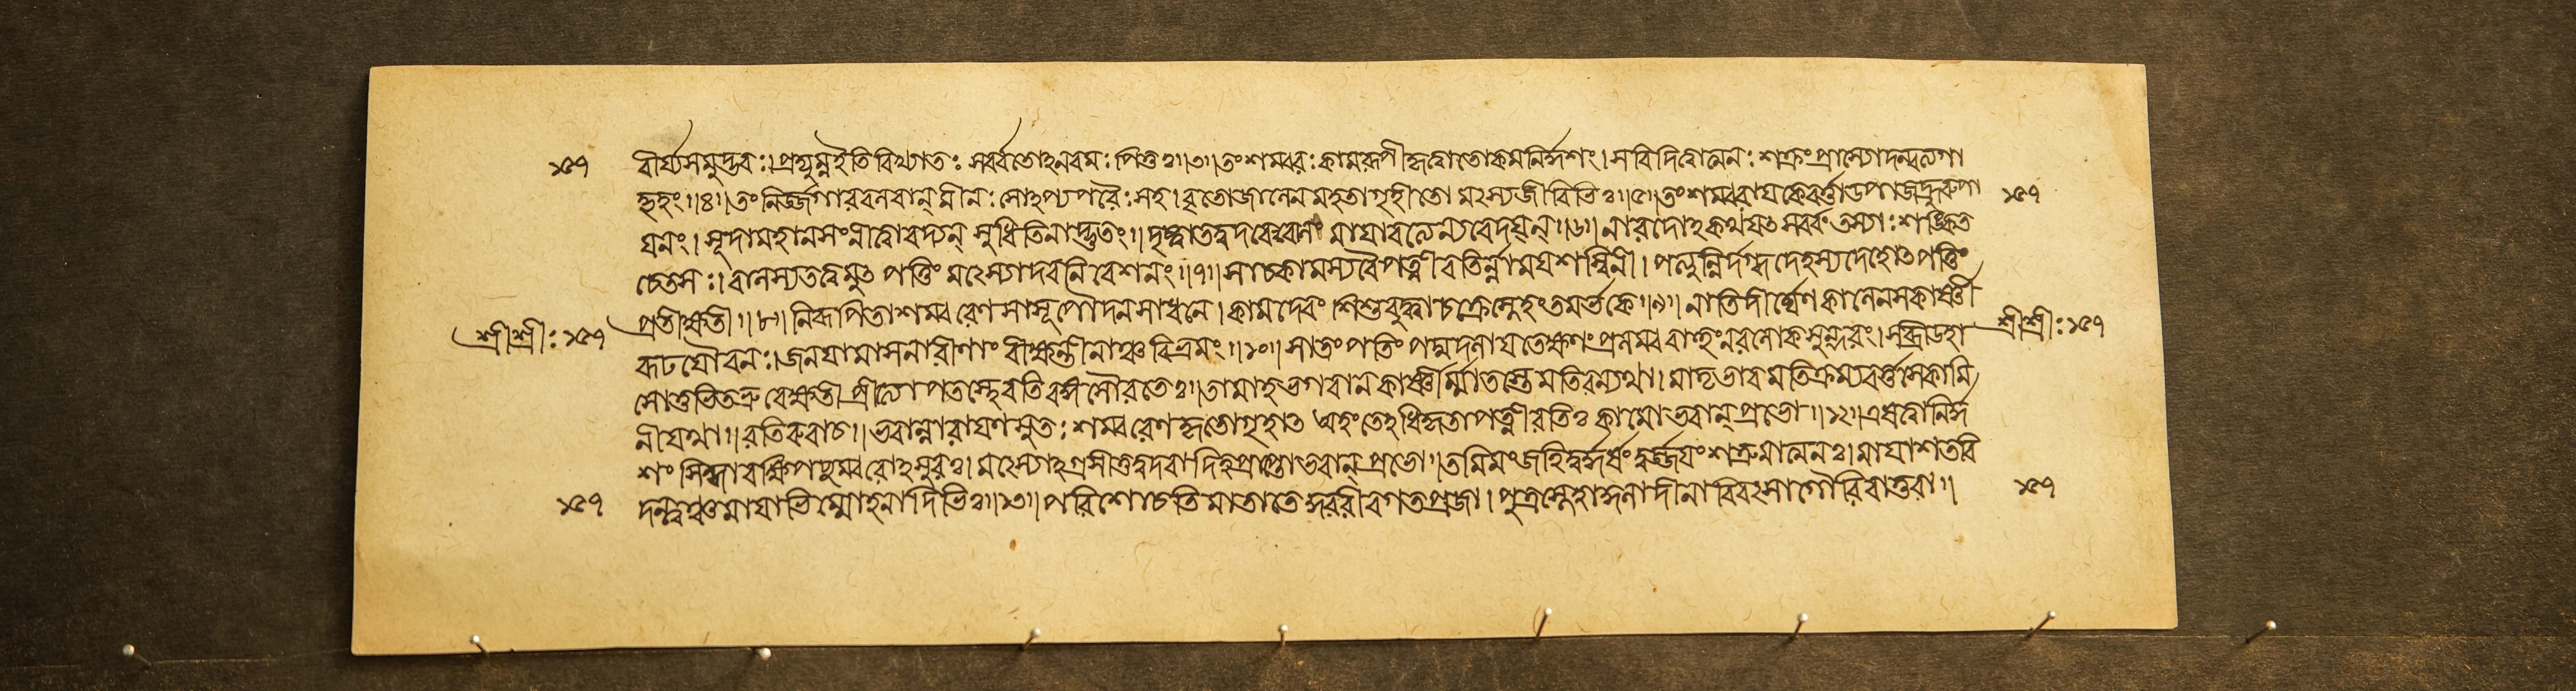 ১৫৭ বীর্য্যসমুদ্ভবঃ। প্রদ্যুম্নইতিবিখ্যাতঃ সর্ব্বতোঽনবমঃ পিতুঃ॥৩॥তংশম্বরঃ কামরূপীহৃত্বাতোকমনির্দ্দশং। সবিদিত্বাত্মনঃ শত্রুংপ্রাস্যোদন্বত্যগা
দ্গৃহং॥৪॥তংনির্জ্জগারবলবান্ মীনঃ সোঽপ্যপরৈঃ সহ। বৃতোজালেনমহতাগৃহীতো মৎস্যজীবিভিঃ॥৫॥তংশম্বরায়কৈবর্ত্তাউপাজহ্রুরুপা ১৫৭
য়নং। সূদামহানসংনীত্বাবদ্যন্ সুধিতিনাদ্ভুতং॥ দৃষ্ট্বাতদুদরেবালং মায়াবত্যৈন্যবেদয়ন্॥৬॥ নারদোঽকথয়ৎ সর্ব্বং তস্যাঃ শঙ্কিত
চেতসঃ। বালস্যতত্ত্বমুৎপত্তিং মৎস্যোদরনিবেশনং॥৭॥ সাচকামস্যবৈপত্নীরতির্ন্নামযশস্বিনী। পত্যুর্ন্নির্দগ্ধদেহস্যদেহোৎপত্তিং
প্রতীক্ষতী॥৮॥ নিরূপিতাশম্বরেণ সাসূপৌদনসাধনে। কামদেবং শিশুংবুদ্ধ্বাচক্রেস্নেহংতমর্ভকে॥৯॥ নাতিদীর্ঘেণকালেনসকার্ষ্ণী
শ্রীশ্রীঃ ১৫৭ রূঢযৌবনঃ। জনয়ামাসনারীণাং বীক্ষন্তীনাঞ্চবিভ্রমং॥১০॥ সাতংপতিং পদ্মদলায়তেক্ষণংপ্রলম্ববাহুংনরলোকসুন্দরং। সব্রীডহা শ্রীশ্রীঃ ১৫৭
সোত্তভিতভ্রুবেক্ষতী প্রীত্যোপতস্থেরতিরঙ্গসৌরতৈঃ॥তামাহভগবানকার্ষ্ণির্ম্মাতস্তেমতিরন্যথা। মাতৃভাবমতিক্রম্যবর্ত্তসেকামি
নীযথা॥ রতিরুবাচ॥ ভবান্নারায়ণসুতঃ শম্বরেণহৃতোগৃহাৎ অহংতেঽধিকৃতাপত্নীরতিঃ কামোভবান্ প্রভো॥১২॥এষত্বানির্দ্দ
শং সিন্ধাবক্ষিপচ্ছম্বরোঽসুরঃ। মৎস্যোঽগ্রসীত্তদুদরাদিহপ্রাপ্তোভবান্ প্রভো॥তমিমংজহিদুর্দ্ধর্ষং দুর্জ্জয়ংশত্রুমাত্মনঃ। মায়াশতবি
১৫৭ দন্ত্বঞ্চমায়াভির্ম্মোহনাদিভিঃ॥১৩॥ পরিশোচতিমাতাতে কুররীবগতপ্রজা। পুত্রস্নেহাকুলাদীনাবিবৎসাগৌরিবাতুরা॥ ১৫৭